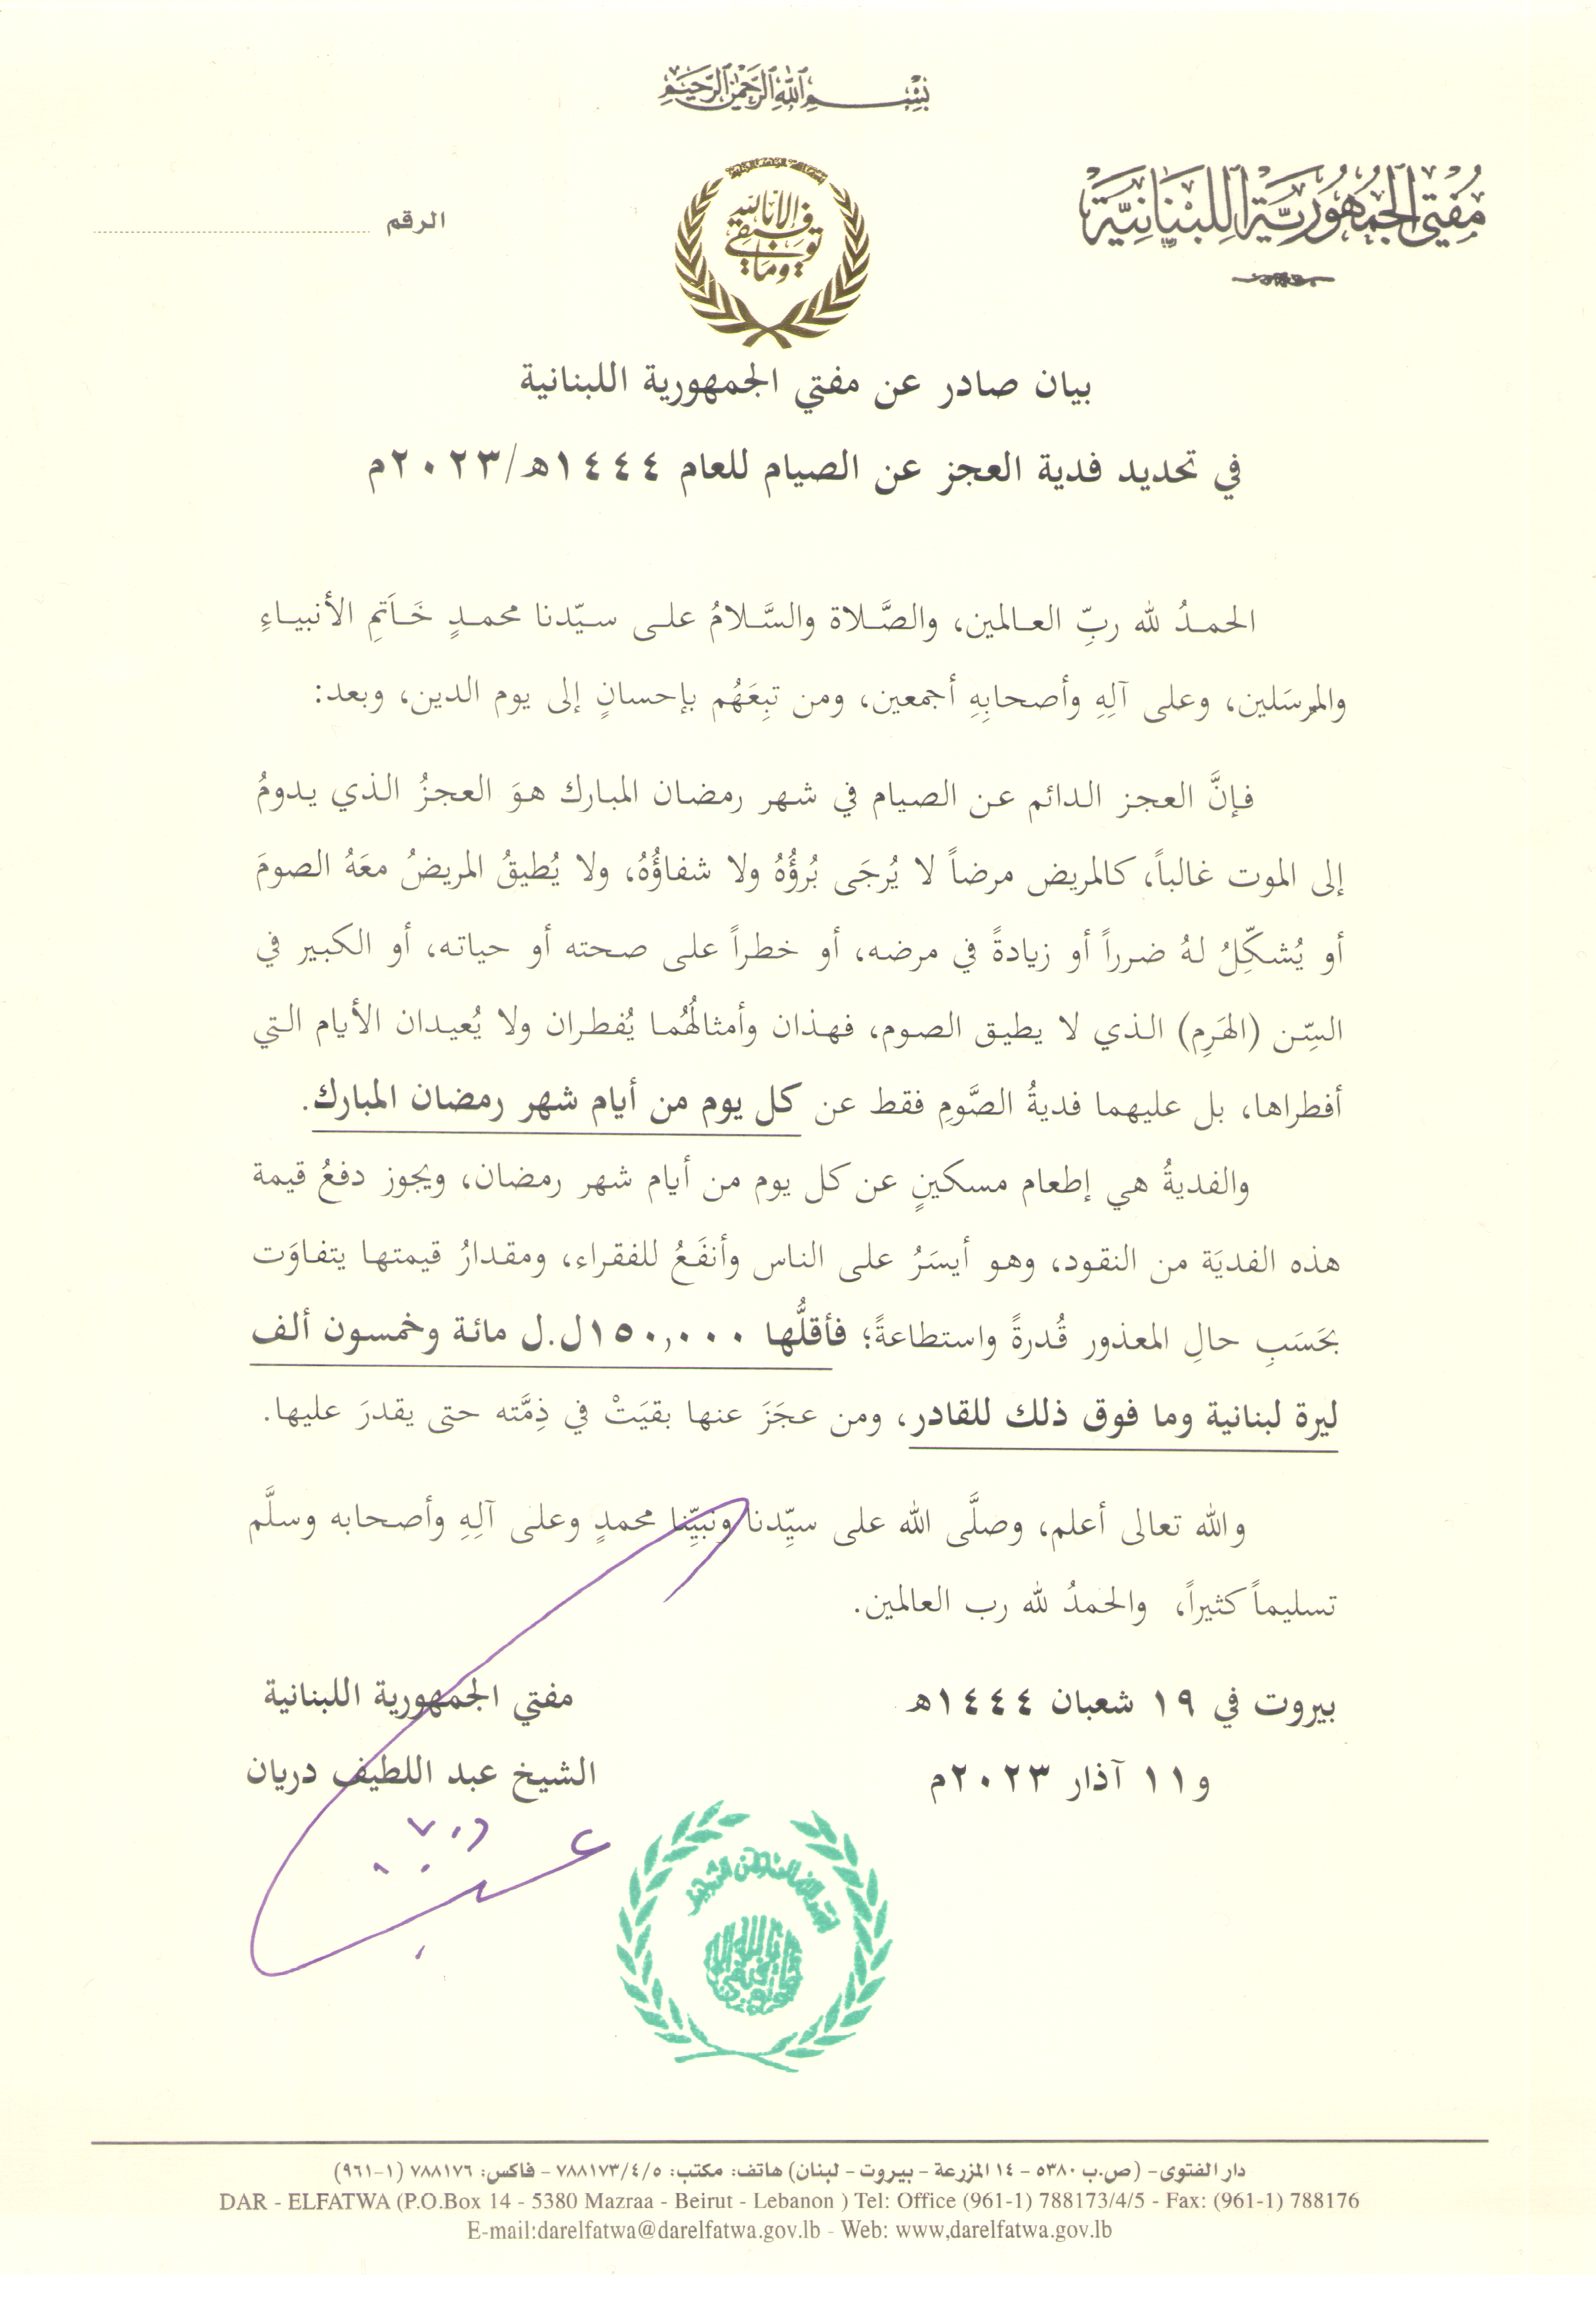 بِسْمِ اللهِ الرَّحْمٰنِ الرَّحِيمِ
مُفْتِي الجُمْهُورِيَّةِ اللُّبْنَانِيَّةِ
الرقم
وما توفيقي إلا بالله
بيان صادر عن مفتي الجمهورية اللبنانية
في تحديد فدية العجز عن الصيام للعام ١٤٤٤هـ/٢٠٢٣م
الحمدُ لله ربِّ العالمين، والصَّلاة والسَّلامُ على سيّدنا محمدٍ خَاتَمِ الأنبياءِ
والمرسَلين، وعلى آلِهِ وأصحابِهِ أجمعين، ومن تبِعَهُم بإحسانٍ إلى يوم الدين، وبعد:
فإنَّ العجز الدائم عن الصيام في شهر رمضان المبارك هوَ العجزُ الذي يدومُ
إلى الموت غالباً، كالمريض مرضاً لا يُرجَى بُرؤُهُ ولا شفاؤُهُ، ولا يُطيقُ المريضُ معَهُ الصومَ
أو يُشكِّلُ لهُ ضرراً أو زيادةً في مرضه، أو خطراً على صحته أو حياته، أو الكبير في
السِّن (الهَرِم) الذي لا يطيق الصوم، فهذان وأمثالُهُما يُفطران ولا يُعيدان الأيام التي
أفطراها، بل عليهما فديةُ الصَّومِ فقط عن كل يوم من أيام شهر رمضان المبارك.
والفديةُ هي إطعام مسكينٍ عن كل يوم من أيام شهر رمضان، ويجوز دفعُ قيمة
هذه الفديَة من النقود، وهو أيسَرُ على الناس وأنفَعُ للفقراء، ومقدارُ قيمتها يتفاوَت
بحَسَبِ حالِ المعذور قُدرةً واستطاعةً؛ فأقلُّها ١٥٠,٠٠٠ل.ل مائة وخمسون ألف
ليرة لبنانية وما فوق ذلك للقادر، ومن عجَزَ عنها بقيَتْ في ذِمَّته حتى يقدرَ عليها.
والله تعالى أعلم، وصلَّى الله على سيِّدنا ونبيِّنا محمدٍ وعلى آلِهِ وأصحابه وسلَّم
تسليماً كثيراً، والحمدُ لله رب العالمين.
بيروت في ١٩ شعبان ١٤٤٤هـ
و١١ آذار ٢٠٢٣م
مفتي الجمهورية اللبنانية
الشيخ عبد اللطيف دريان
دار الفتوى- (ص.ب ٥٣٨٠ - ١٤ المزرعة - بيروت - لبنان) هاتف: مكتب: ٧٨٨١٧٣/٤/٥ - فاكس: ٧٨٨١٧٦ (١-٩٦١)
DAR - ELFATWA (P.O.Box 14 - 5380 Mazraa - Beirut - Lebanon ) Tel: Office (961-1) 788173/4/5 - Fax: (961-1) 788176
E-mail:darelfatwa@darelfatwa.gov.lb - Web: www,darelfatwa.gov.lb